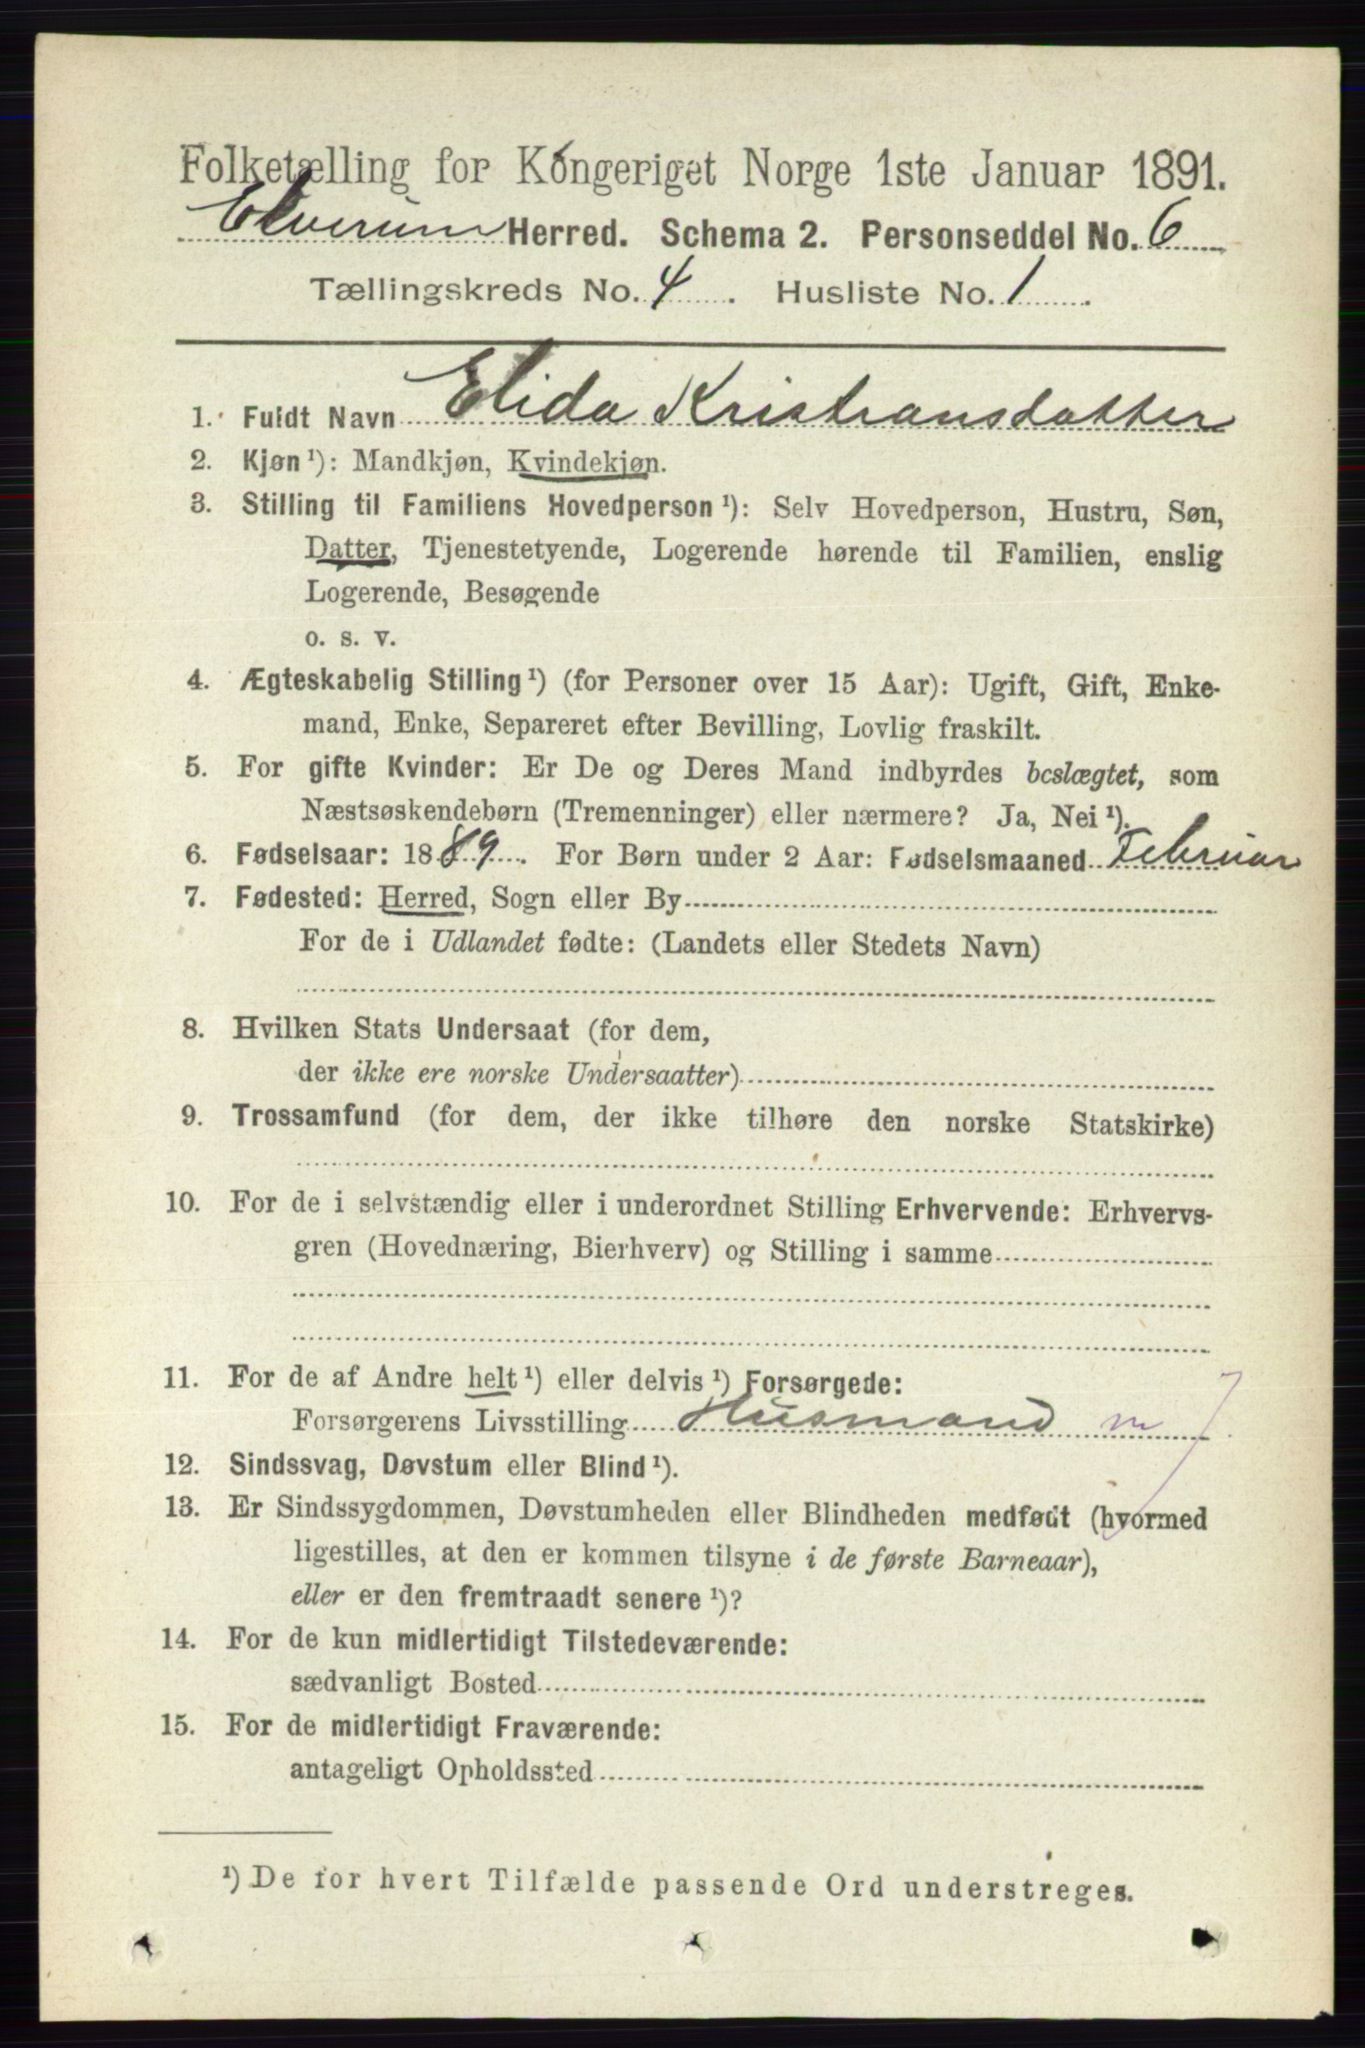 Folketælling for Kongeriget Norge 1ste Januar 1891.
Elverum Herred. Schema 2. Personseddel No. 6
Tællingskreds No. 4. Husliste No. 1.
1. Fuldt Navn Elida Kristiansdatter
2. Kjøn ¹): Mandkjøn, Kvindekjøn.
3. Stilling til Familiens Hovedperson ¹): Selv Hovedperson, Hustru, Søn,
Datter, Tjenestetyende, Logerende hørende til Familien, enslig
Logerende, Besøgende
o. s. v.
4. Ægteskabelig Stilling ¹) (for Personer over 15 Aar): Ugift, Gift, Enke-
mand, Enke, Separeret efter Bevilling, Lovlig fraskilt.
5. For gifte Kvinder: Er De og Deres Mand indbyrdes beslægtet, som
Næstsøskendebørn (Tremenninger) eller nærmere? Ja, Nei ¹).
6. Fødselsaar: 1889. For Børn under 2 Aar: Fødselsmaaned Februar
7. Fødested: Herred, Sogn eller By
For de i Udlandet fødte: (Landets eller Stedets Navn)
8. Hvilken Stats Undersaat (for dem,
der ikke ere norske Undersaatter)
9. Trossamfund (for dem, der ikke tilhøre den norske Statskirke)
10. For de i selvstændig eller i underordnet Stilling Erhvervende: Erhvervs-
gren (Hovednæring, Bierhverv) og Stilling i samme
11. For de af Andre helt ¹) eller delvis ¹) Forsørgede:
Forsørgerens Livsstilling Husmand m J
12. Sindssvag, Døvstum eller Blind ¹).
13. Er Sindssygdommen, Døvstumheden eller Blindheden medfødt (hvormed
ligestilles, at den er kommen tilsyne i de første Barneaar),
eller er den fremtraadt senere ¹)?
14. For de kun midlertidigt Tilstedeværende:
sædvanligt Bosted
15. For de midlertidigt Fraværende:
antageligt Opholdssted
¹) De for hvert Tilfælde passende Ord understreges.